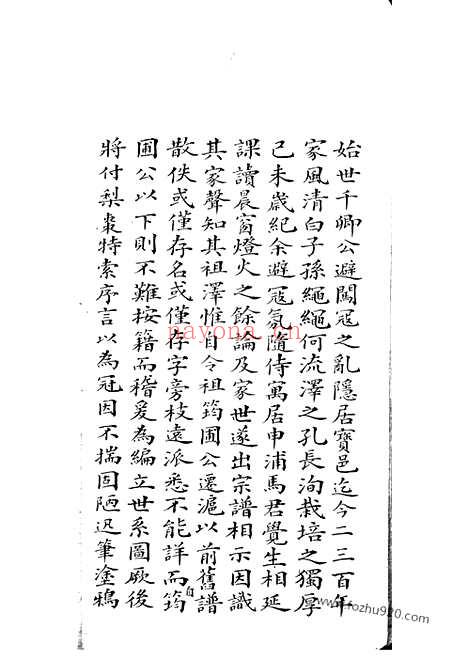 始世千卿公避闖冦之亂隱居寶邑迄今二三百年
家風清白子孫繩繩何流澤之孔長洵栽培之獨厚
己未歲紀余避冦氛隨侍寓居申浦馬君覺生相延
課讀晨窗燈火之餘論及家世遂出宗譜相示因識
其家聲知其祖澤惟自令祖筠圃公遷滬以前舊譜
散佚或僅存名或僅存字旁枝遠派悉不能詳而筠
自
圃公以下則不難按籍而稽爰為編立世系圖厥後
將付梨棗特索序言以為冠因不揣固陋迟筆塗鴉
nayona.cn
www.fozhu920.com